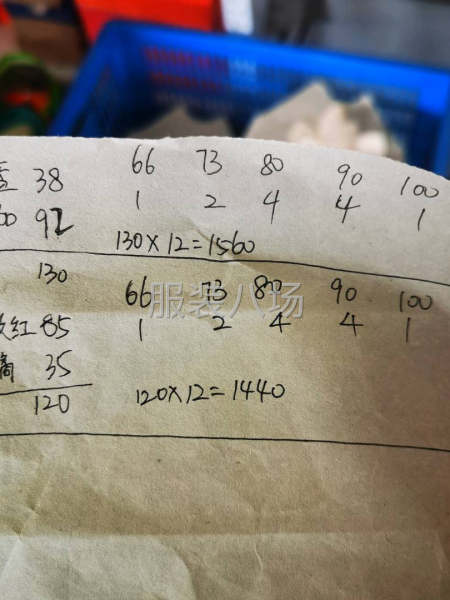 66 73 80 90 100
蓝 38 1 2 4 4 1
92
130×12=1560
130
66 73 80 90 100
红 85 1 2 4 4 1
35
120 120×12=1440
服装八场